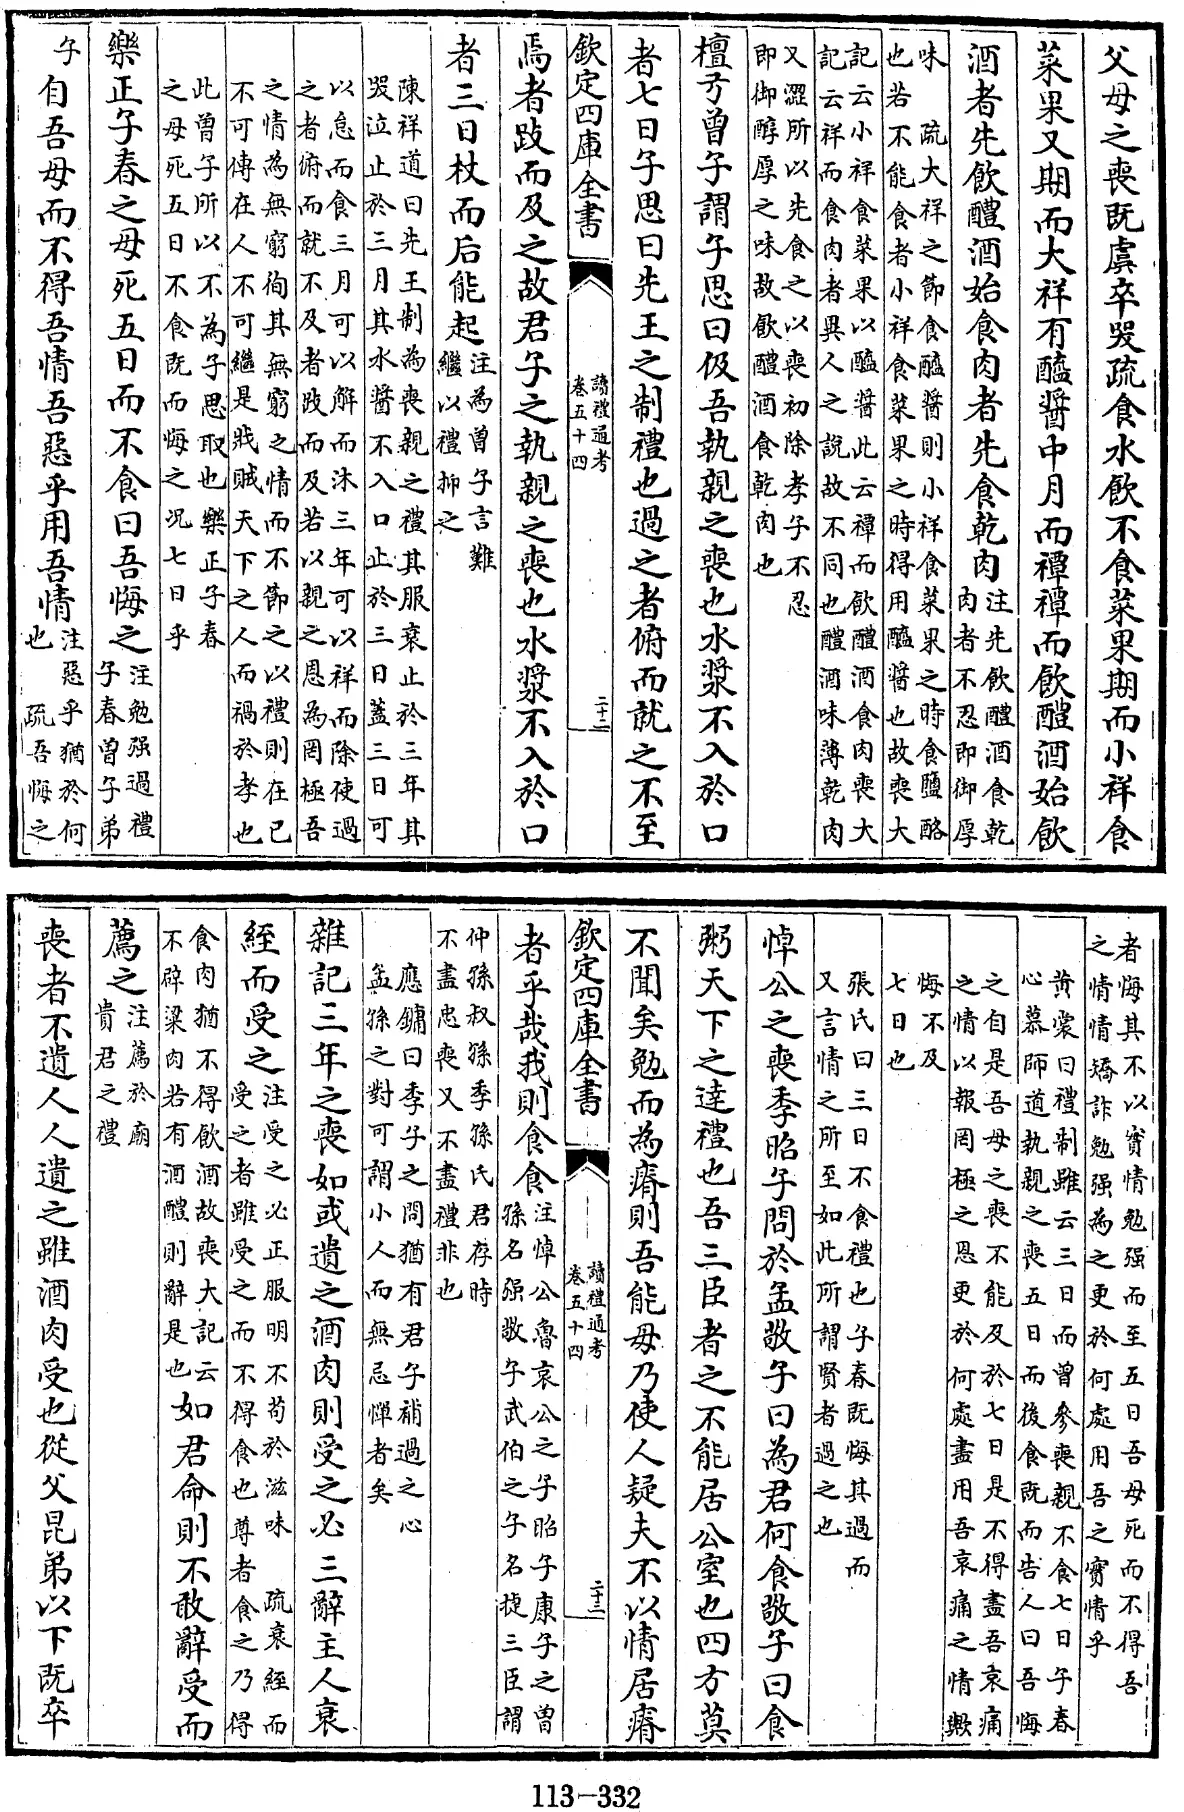 父母之喪既虞卒哭疏食水飲不食菜果期而小祥食
菜果又期而大祥有醯醬中月而禫禫而飲醴酒始飲
酒者先飲醴酒始食肉者先食乾肉
注先飲醴酒食乾
肉者不忍即御厚
味 疏大祥之節食醯醬則小祥食菜果之時食鹽酪
也若不能食者小祥食菜果之時得用醯醬也故喪大
記云小祥食菜果以醯醬此云禫而飲醴酒食肉喪大
記云祥而食肉者異人之說故不同也醴酒味薄乾肉
又澀所以先食之以喪初除孝子不忍
即御醇厚之味故飲醴酒食乾肉也
檀弓曾子謂子思曰伋吾執親之喪也水漿不入於口
者七日子思曰先王之制禮也過之者俯而就之不至
欽定四庫全書
讀禮通考
卷五十四
二十二
焉者跂而及之故君子之執親之喪也水漿不入於口
者三日杖而后能起
注為曾子言難
繼以禮抑之
陳祥道曰先王制為喪親之禮其服衰止於三年其
哭泣止於三月其水醬不入口止於三日蓋三日可
以怠而食三月可以解而沐三年可以祥而除使過
之者俯而就不及者跂而及若以親之恩為罔極吾
之情為無窮徇其無窮之情而不節之以禮則在己
不可傳在人不可繼是戕賊天下之人而禍於孝也
此曾子所以不為子思取也樂正子春
之母死五日不食既而悔之况七日乎
樂正子春之母死五日而不食曰吾悔之
注勉强過禮
子春曾子弟
子
自吾母而不得吾情吾惡乎用吾情
注惡乎猶於何
也 疏吾悔之
者悔其不以實情勉强而至五日吾母死而不得吾
之情情矯詐勉强為之更於何處用吾之實情乎
黄裳曰禮制雖云三日而曾參喪親不食七日子春
心慕師道執親之喪五日而後食既而告人曰吾悔
之自是吾母之喪不能及於七日是不得盡吾哀痛
之情以報罔極之恩更於何處盡用吾哀痛之情歟
悔不及
七日也
張氏曰三日不食禮也子春既悔其過而
又言情之所至如此所謂賢者過之也
悼公之喪季昭子問於孟敬子曰為君何食敬子曰食
粥天下之達禮也吾三臣者之不能居公室也四方莫
不聞矣勉而為瘠則吾能毋乃使人疑夫不以情居瘠
欽定四庫全書
讀禮通考
卷五十四
二十三
者乎哉我則食食
注悼公魯哀公之子昭子康子之曾
孫名强敬子武伯之子名捷三臣謂
仲孫叔孫季孫氏君存時
不盡忠喪又不盡禮非也
應鏞曰季子之問猶有君子補過之心
孟孫之對可謂小人而無忌憚者矣
雜記三年之喪如或遺之酒肉則受之必三辭主人衰
絰而受之
注受之必正服明不苟於滋味 疏衰絰而
受之者雖受之而不得食也尊者食之乃得
食肉猶不得飲酒故喪大記云
不辟梁肉若有酒醴則辭是也
如君命則不敢辭受而
薦之
注薦於廟
貴君之禮
喪者不遺人人遺之雖酒肉受也從父昆弟以下既卒
113-332